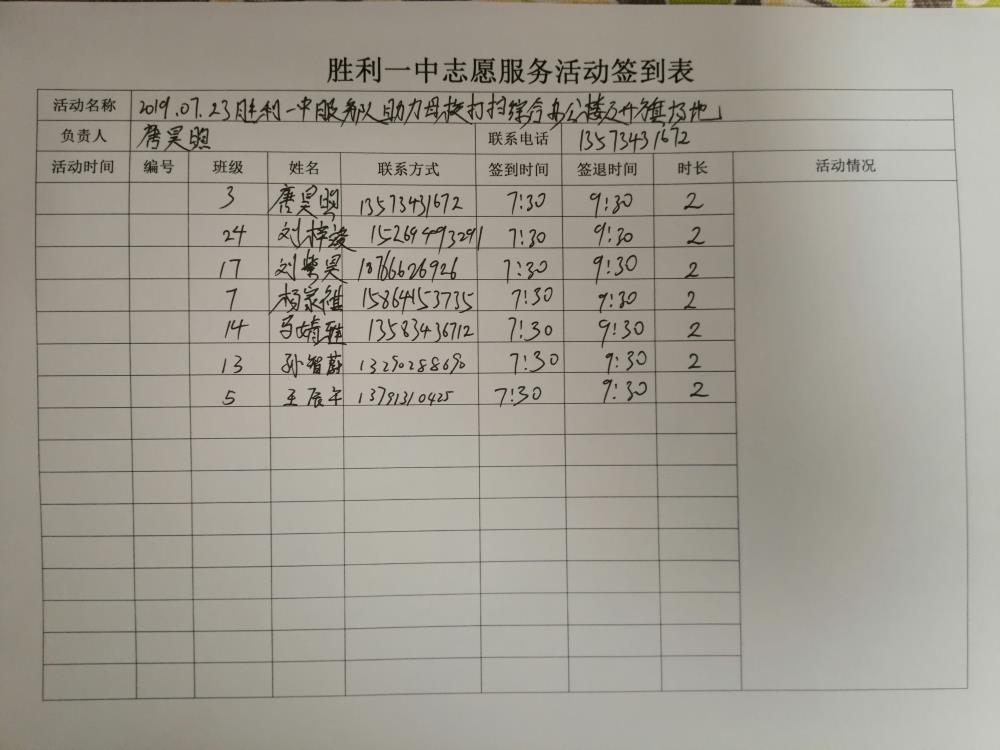 胜利一中志愿服务活动签到表
活动名称 2019.07.23胜利一中服务队助力母校打扫综合办公楼及升旗场地
负责人 唐昊煦 联系电话 13573431672
活动时间 编号 班级 姓名 联系方式 签到时间 签退时间 时长 活动情况
3 唐昊煦 13573431672 7:30 9:30 2
24 刘梓浚 15269493291 7:30 9:30 2
17 刘紫昊 18766626926 7:30 9:30 2
7 杨家祺 15864153735 7:30 9:30 2
14 马婧 13583436712 7:30 9:30 2
13 孙智蔚 13290288690 7:30 9:30 2
5 王辰午 13791310425 7:30 9:30 2